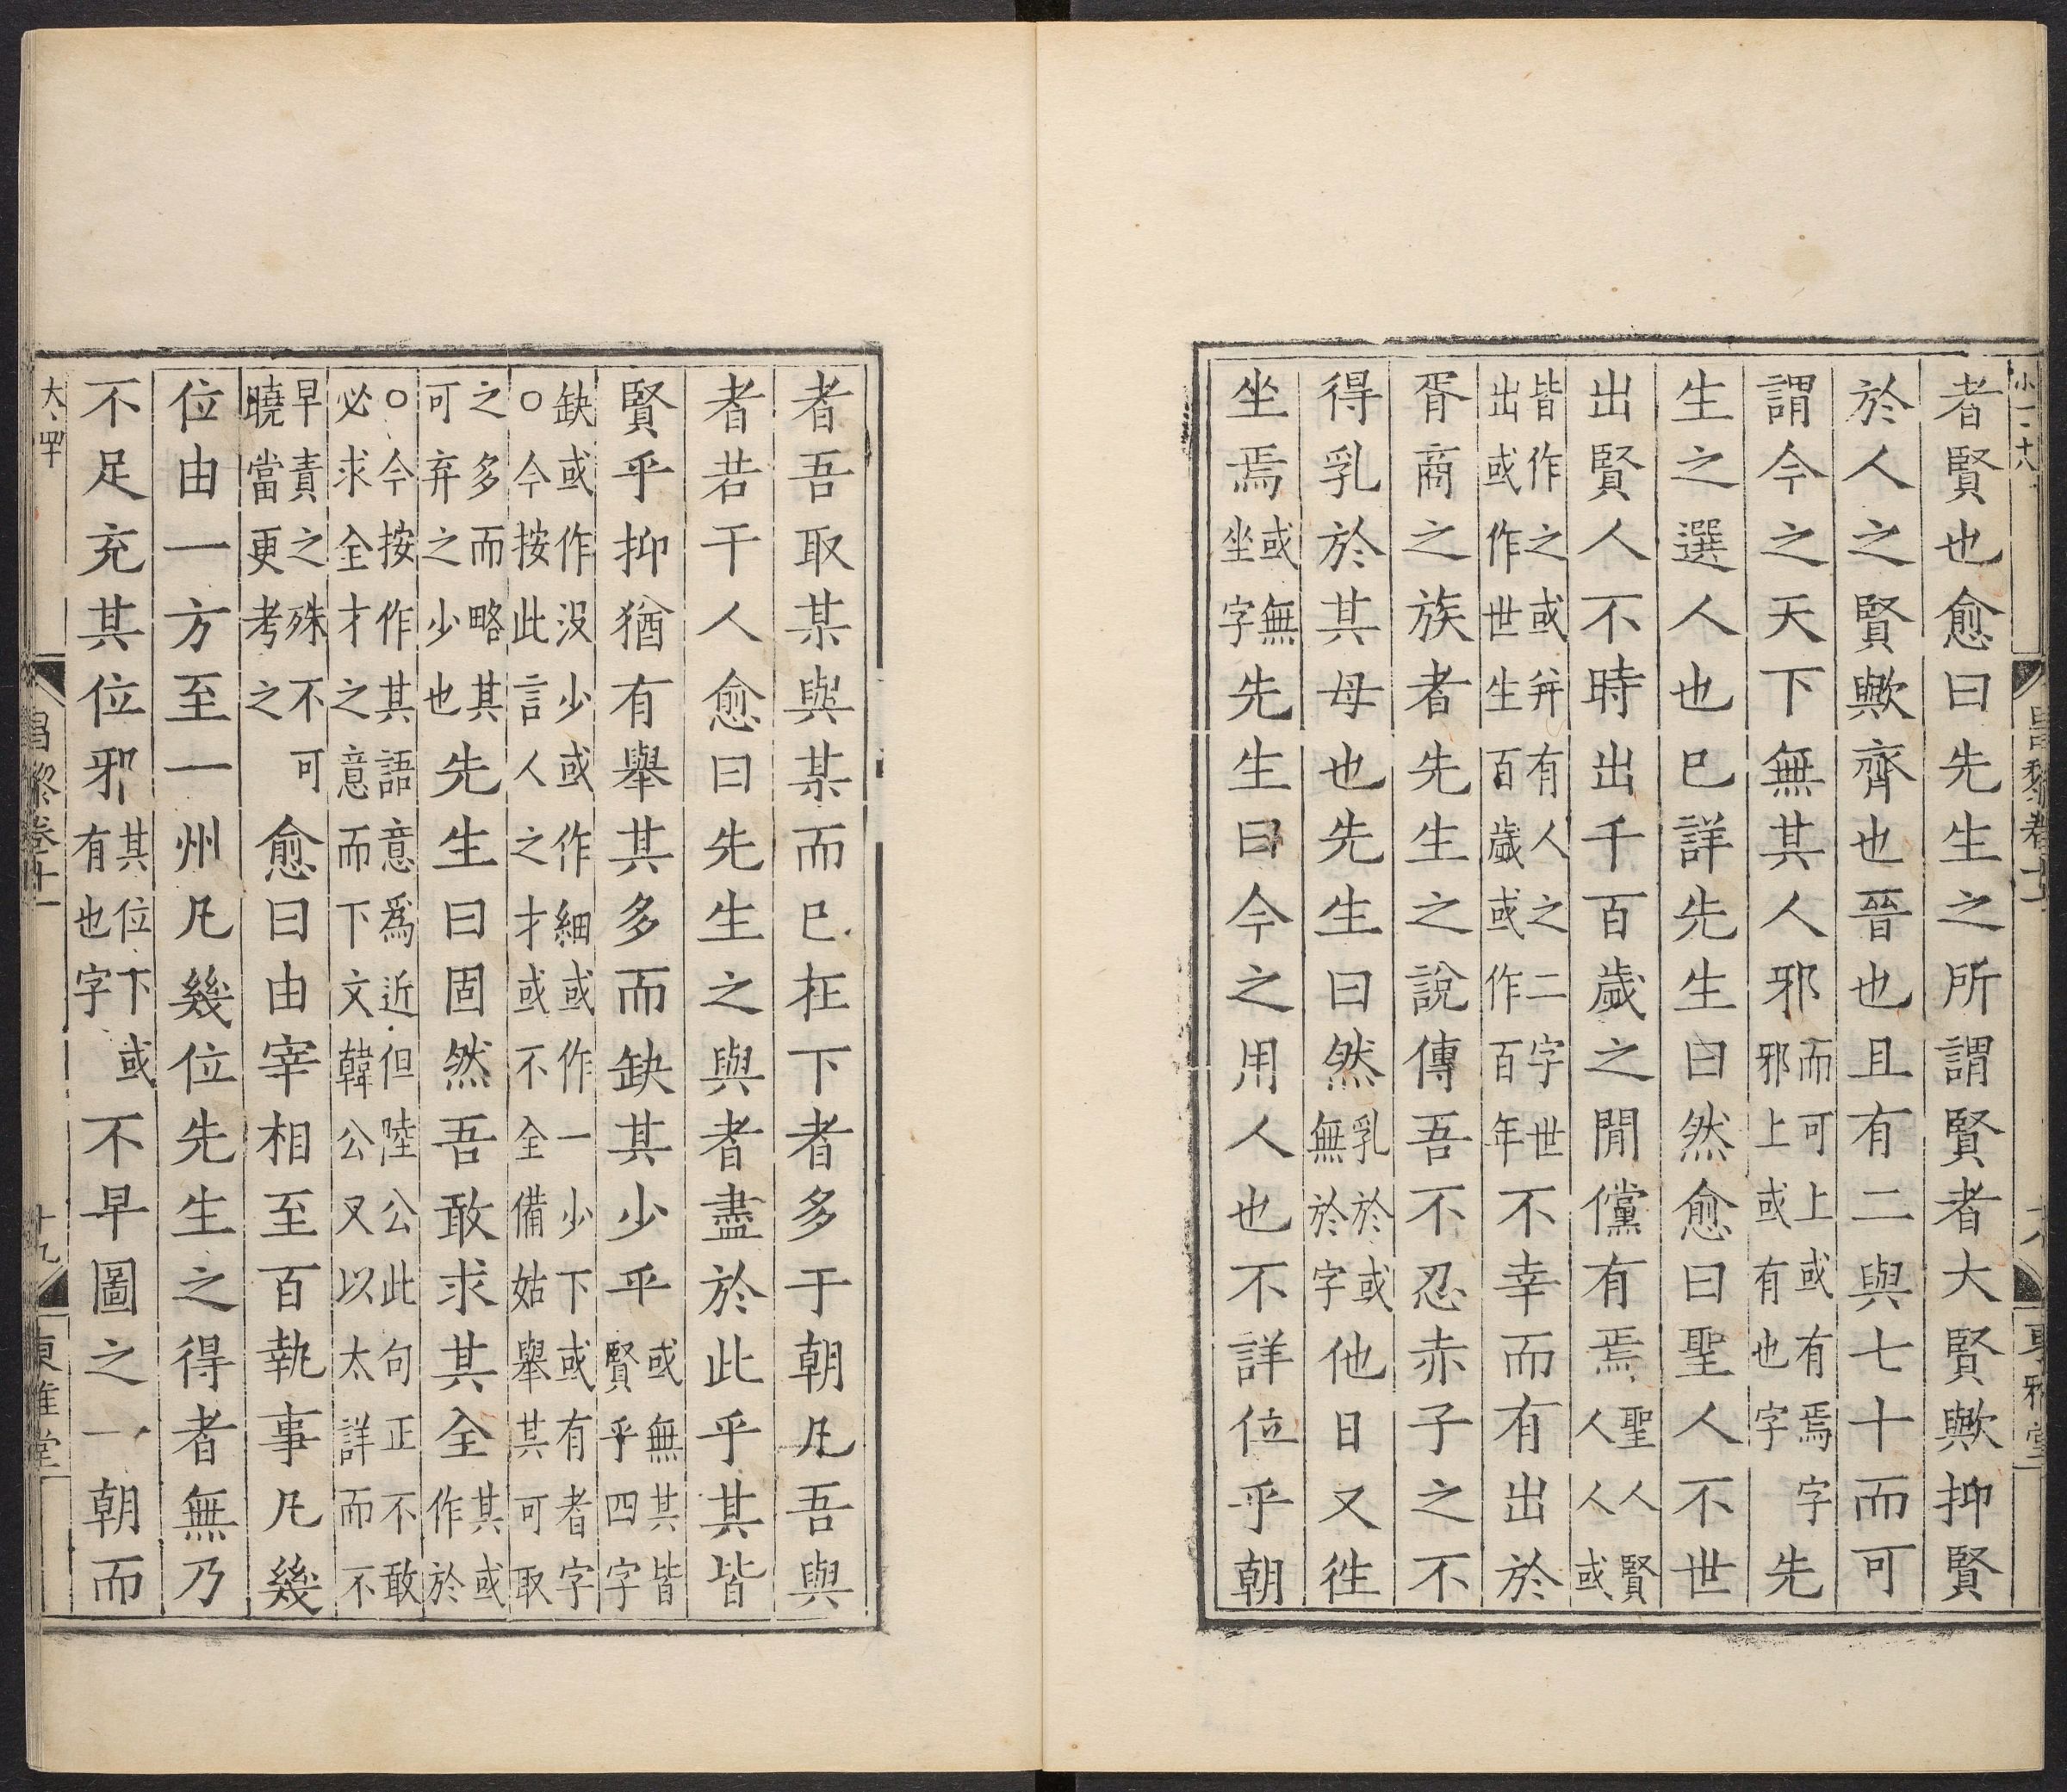 昌黎卷十一 十八 東雅堂
者賢也愈曰先生之所謂賢者大賢歟抑賢
於人之賢歟齊也晉也且有二與七十而可
謂今之天下無其人邪而可上或有焉字邪上或有也字先
生之選人也已詳先生曰然愈曰聖人不世
出賢人不時出千百歲之閒儻有焉聖人賢人人或
皆作之或并有人之二字世出或作世生百歲或作百年不幸而有出於
胥商之族者先生之說傳吾不忍赤子之不
得乳於其母也先生曰然乳於或無於字他日又徃
坐焉或無坐字先生曰今之用人也不詳位乎朝
者吾取某與某而已在下者多于朝凡吾與
者若干人愈曰先生之與者盡於此乎其皆
賢乎抑猶有舉其多而缺其少乎或無其皆賢乎四字
缺或作没少或作細或作一少下或有者字○今按此言人之才或不全備姑舉其可取
之多而略其可弃之少也先生曰固然吾敢求其全其或作於
○今按作其語意爲近但陸公此句正不敢必求全才之意而下文韓公又以太詳而不
早責之殊不可曉當更考之愈曰由宰相至百執事凡幾
位由一方至一州凡幾位先生之得者無乃
不足充其位邪其位下或有也字不早圖之一朝而
昌黎卷十一 十九 東雅堂